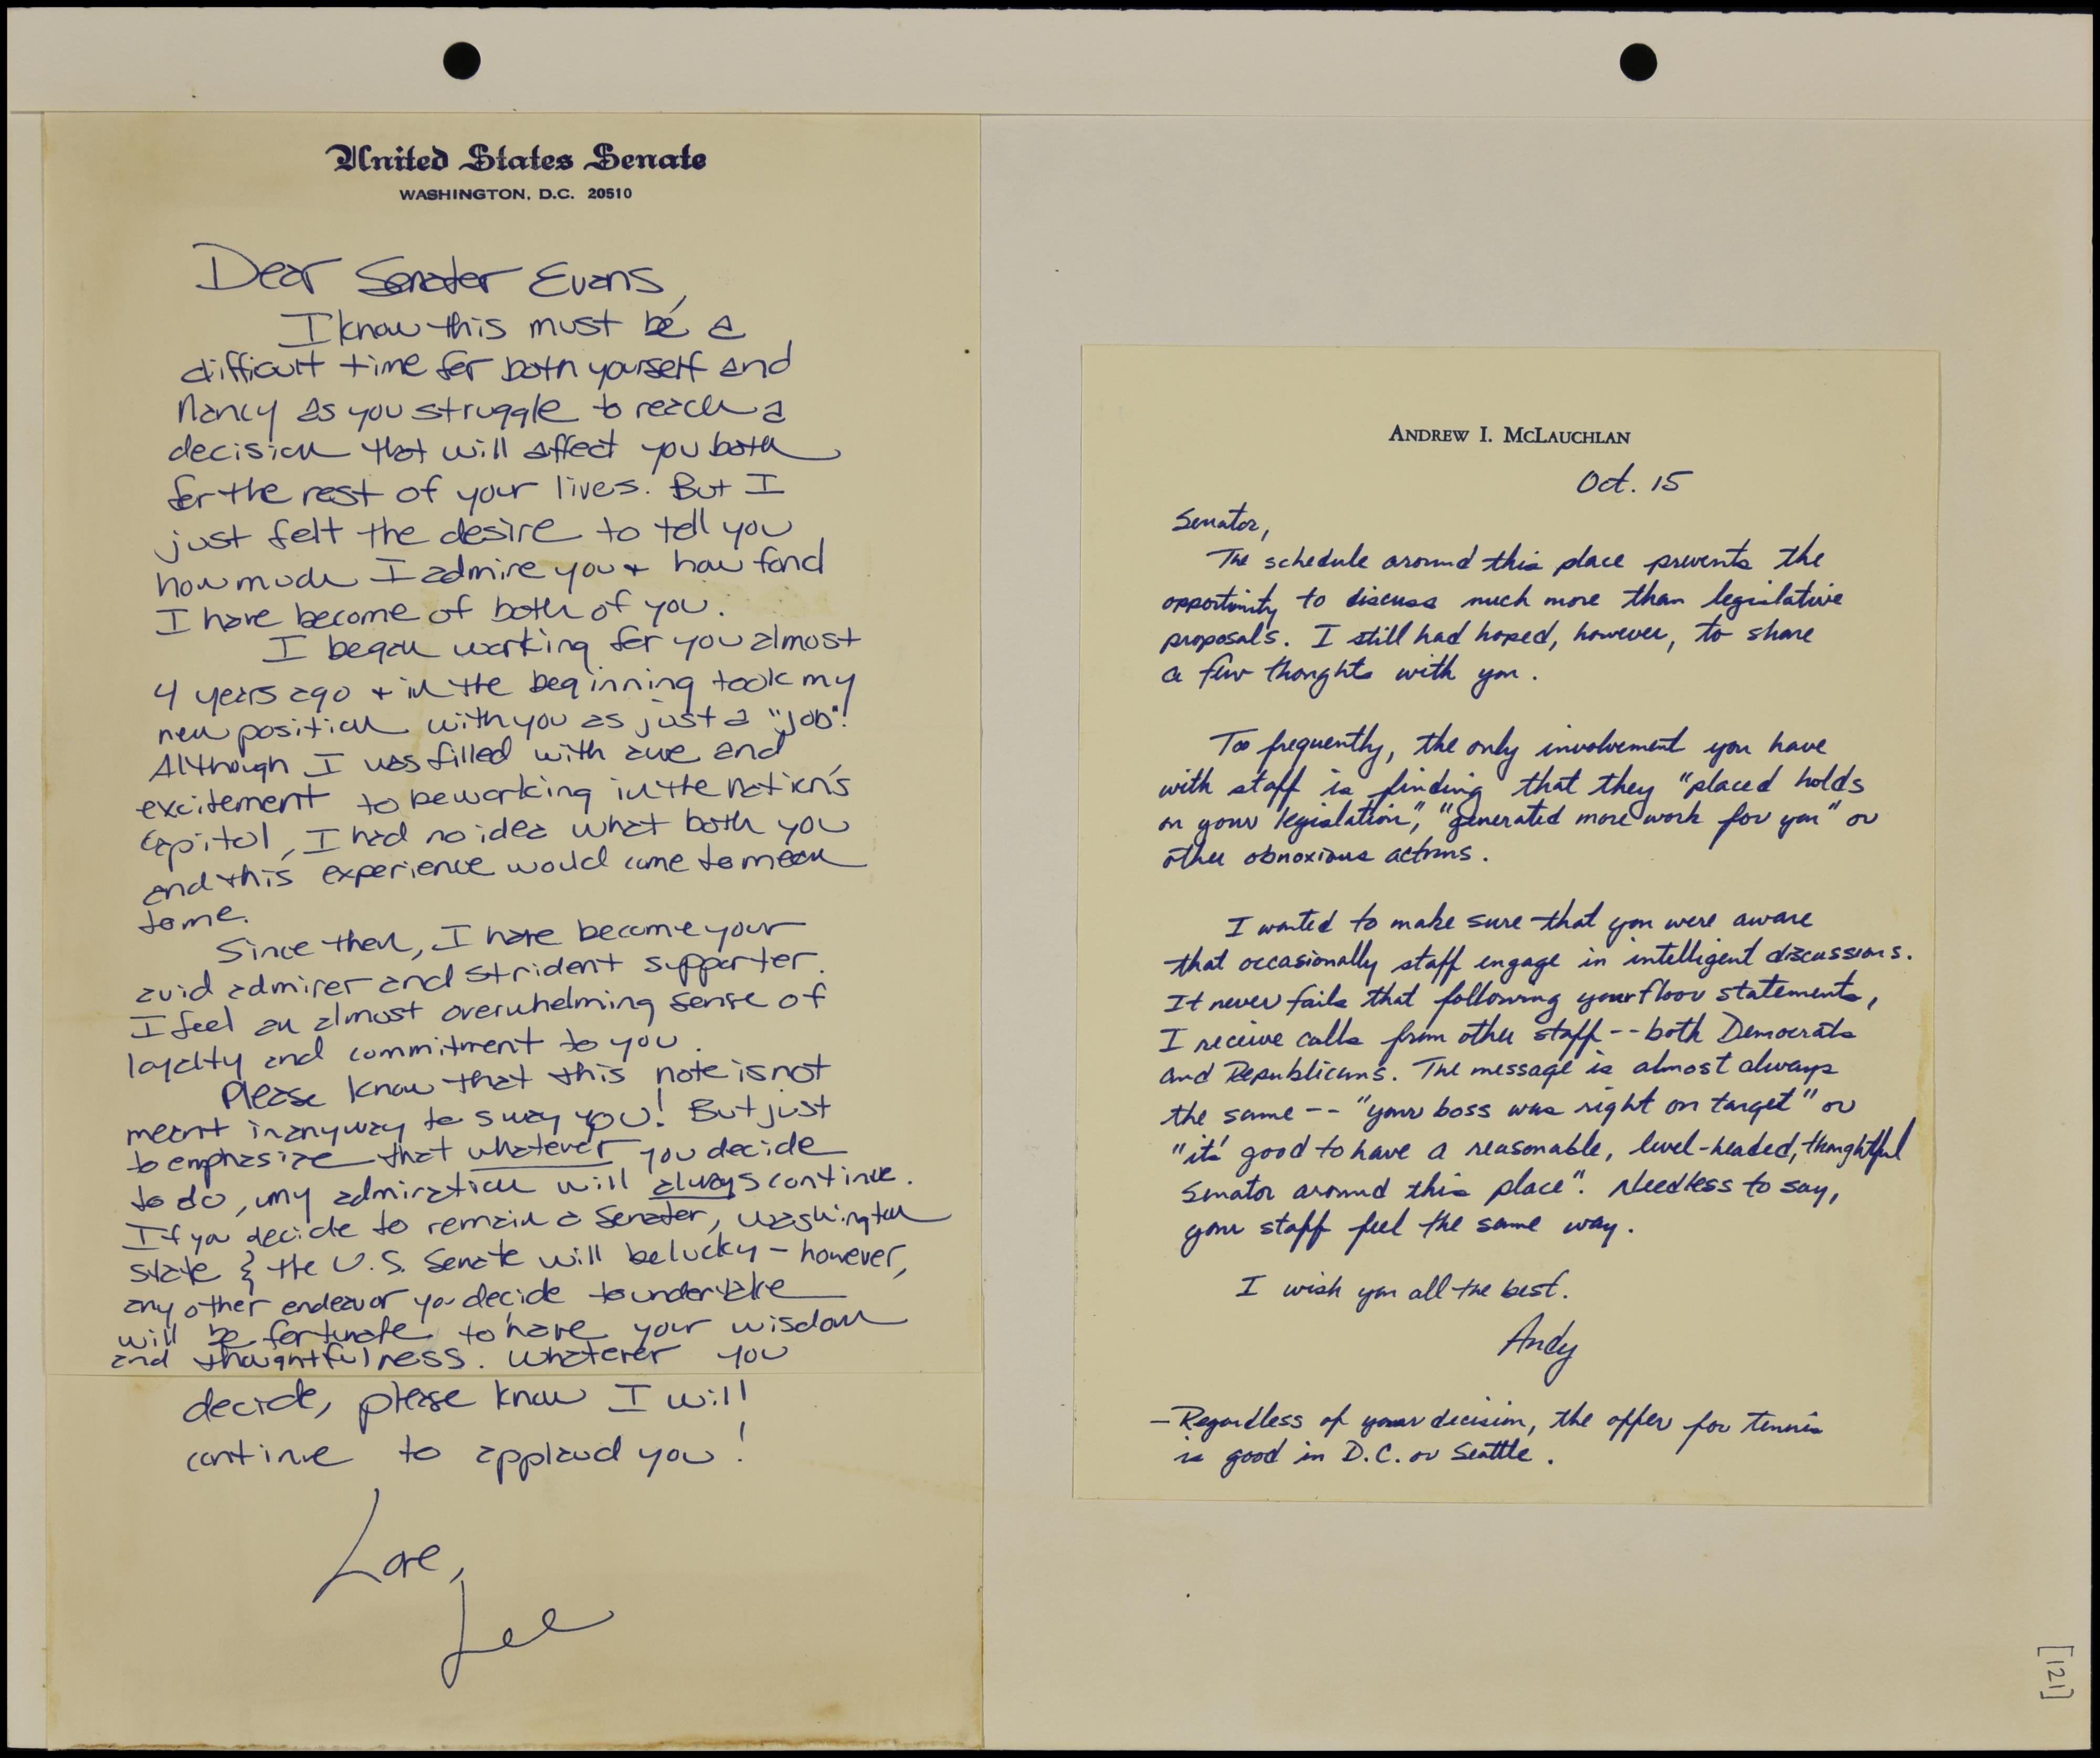 United States Senate
WASHINGTON, D.C. 20510
Dear Senator Evans,
I know this must be a
difficult time for both yourself and
Nancy as you struggle to reach a
decision that will affect you both
for the rest of your lives. But I
just felt the desire to tell you
how much I admire you + how fond
I have become of both of you.
I began working for you almost
4 years ago + in the beginning took my
new position with you as just a "job".
Although I was filled with awe and
excitement to be working in the nation's
capitol, I had no idea what both you
and this experience would come to mean
to me.
Since then, I have become your
avid admirer and strident supporter.
I feel an almost overwhelming sense of
loyalty and commitment to you.
Please know that this note is not
meant in anyway to sway you! But just
to emphasize that whatever you decide
to do, my admiration will always continue.
If you decide to remain a Senator, Washington
State & the U.S. Senate will be lucky - however,
any other endeavor you decide to undertake
will be fortunate to have your wisdom
and thoughtfulness. Whatever you
decide, please know I will
continue to applaud you!
Love,
Lee
ANDREW I. MCLAUCHLAN
Oct. 15
Senator,
The schedule around this place prevents the
opportunity to discuss much more than legislative
proposals. I still had hoped, however, to share
a few thoughts with you.
Too frequently, the only involvement you have
with staff is finding that they "placed holds
on your legislation", "generated more work for you" or
other obnoxious actions.
I wanted to make sure that you were aware
that occasionally staff engage in intelligent discussions.
It never fails that following your floor statements,
I receive calls from other staff -- both Democrats
and Republicans. The message is almost always
the same -- "your boss was right on target" or
"it's good to have a reasonable, level-headed, thoughtful
Senator around this place". Needless to say,
your staff feel the same way.
I wish you all the best.
Andy
- Regardless of your decision, the offer for tennis
is good in D.C. or Seattle.
[121]